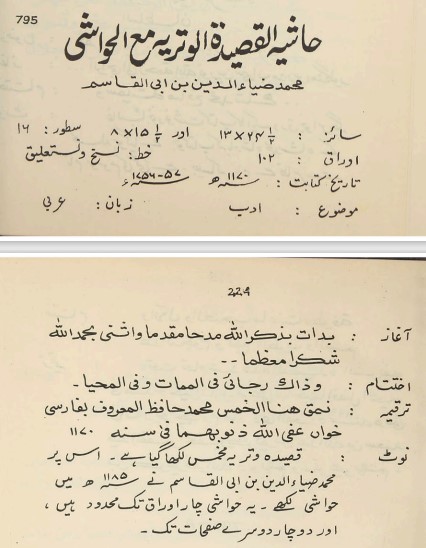 795
حاشیه القصیدة الوتریه مع الحواشی
محمد ضیاء الدین بن ابی القاسم
سائز : ۲۴ ۱/۲ × ۱۳ اور ۱۵ ۱/۲ × ۸ سطور : ۱۶
اوراق : ۱۰۲ خط : نسخ و نستعلیق
تاریخ کتابت : ۱۱۷۰ سنہ ھ ۵۷-۱۷۵۶ سنہء
موضوع : ادب زبان : عربی
224
آغاز : بدات بذکر اللہ مدحا مقدما واثنی بحمد اللہ
شکرا معظما --
اختتام : وذاك رجائی فی الممات وفی المحیا -
ترقیمہ : نمق هنا الخمس محمد حافظ المعروف بفارسی
خواں عفی اللہ ذنوبهما فی سنه ۱۱۷۰
نوٹ : قصیدہ وتریہ مخمس لکھا گیا ہے - اس پر
محمد ضیاء الدین بن ابی القاسم نے ۱۱۸۵ سنہ ھ میں
حواشی لکھے - یہ حواشی چار اوراق تک محدود ہیں ،
اور دو چار دوسرے صفحات تک -